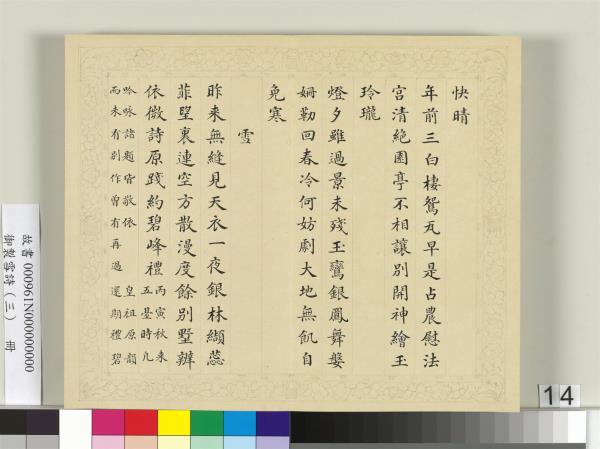 快晴
年前三白棲鴛瓦早是占農慰法
宮清絶園亭不相讓別開神繪玉
玲瓏
燈夕雖過景未殘玉鸞銀鳳舞媻
姍勒回春冷何妨劇大地無飢自
免寒
雪
昨來無縫見天衣一夜銀林纈蕊
菲望裏連空方散漫度餘別墅辨
依微詩原踐約碧峰禮
丙寅秋來
五臺時凡
吟咏諸題皆敬依 皇祖原韻
而未有別作曾有再過還期禮碧
故書 000961N000000000
御製雪詩(三) 冊
14